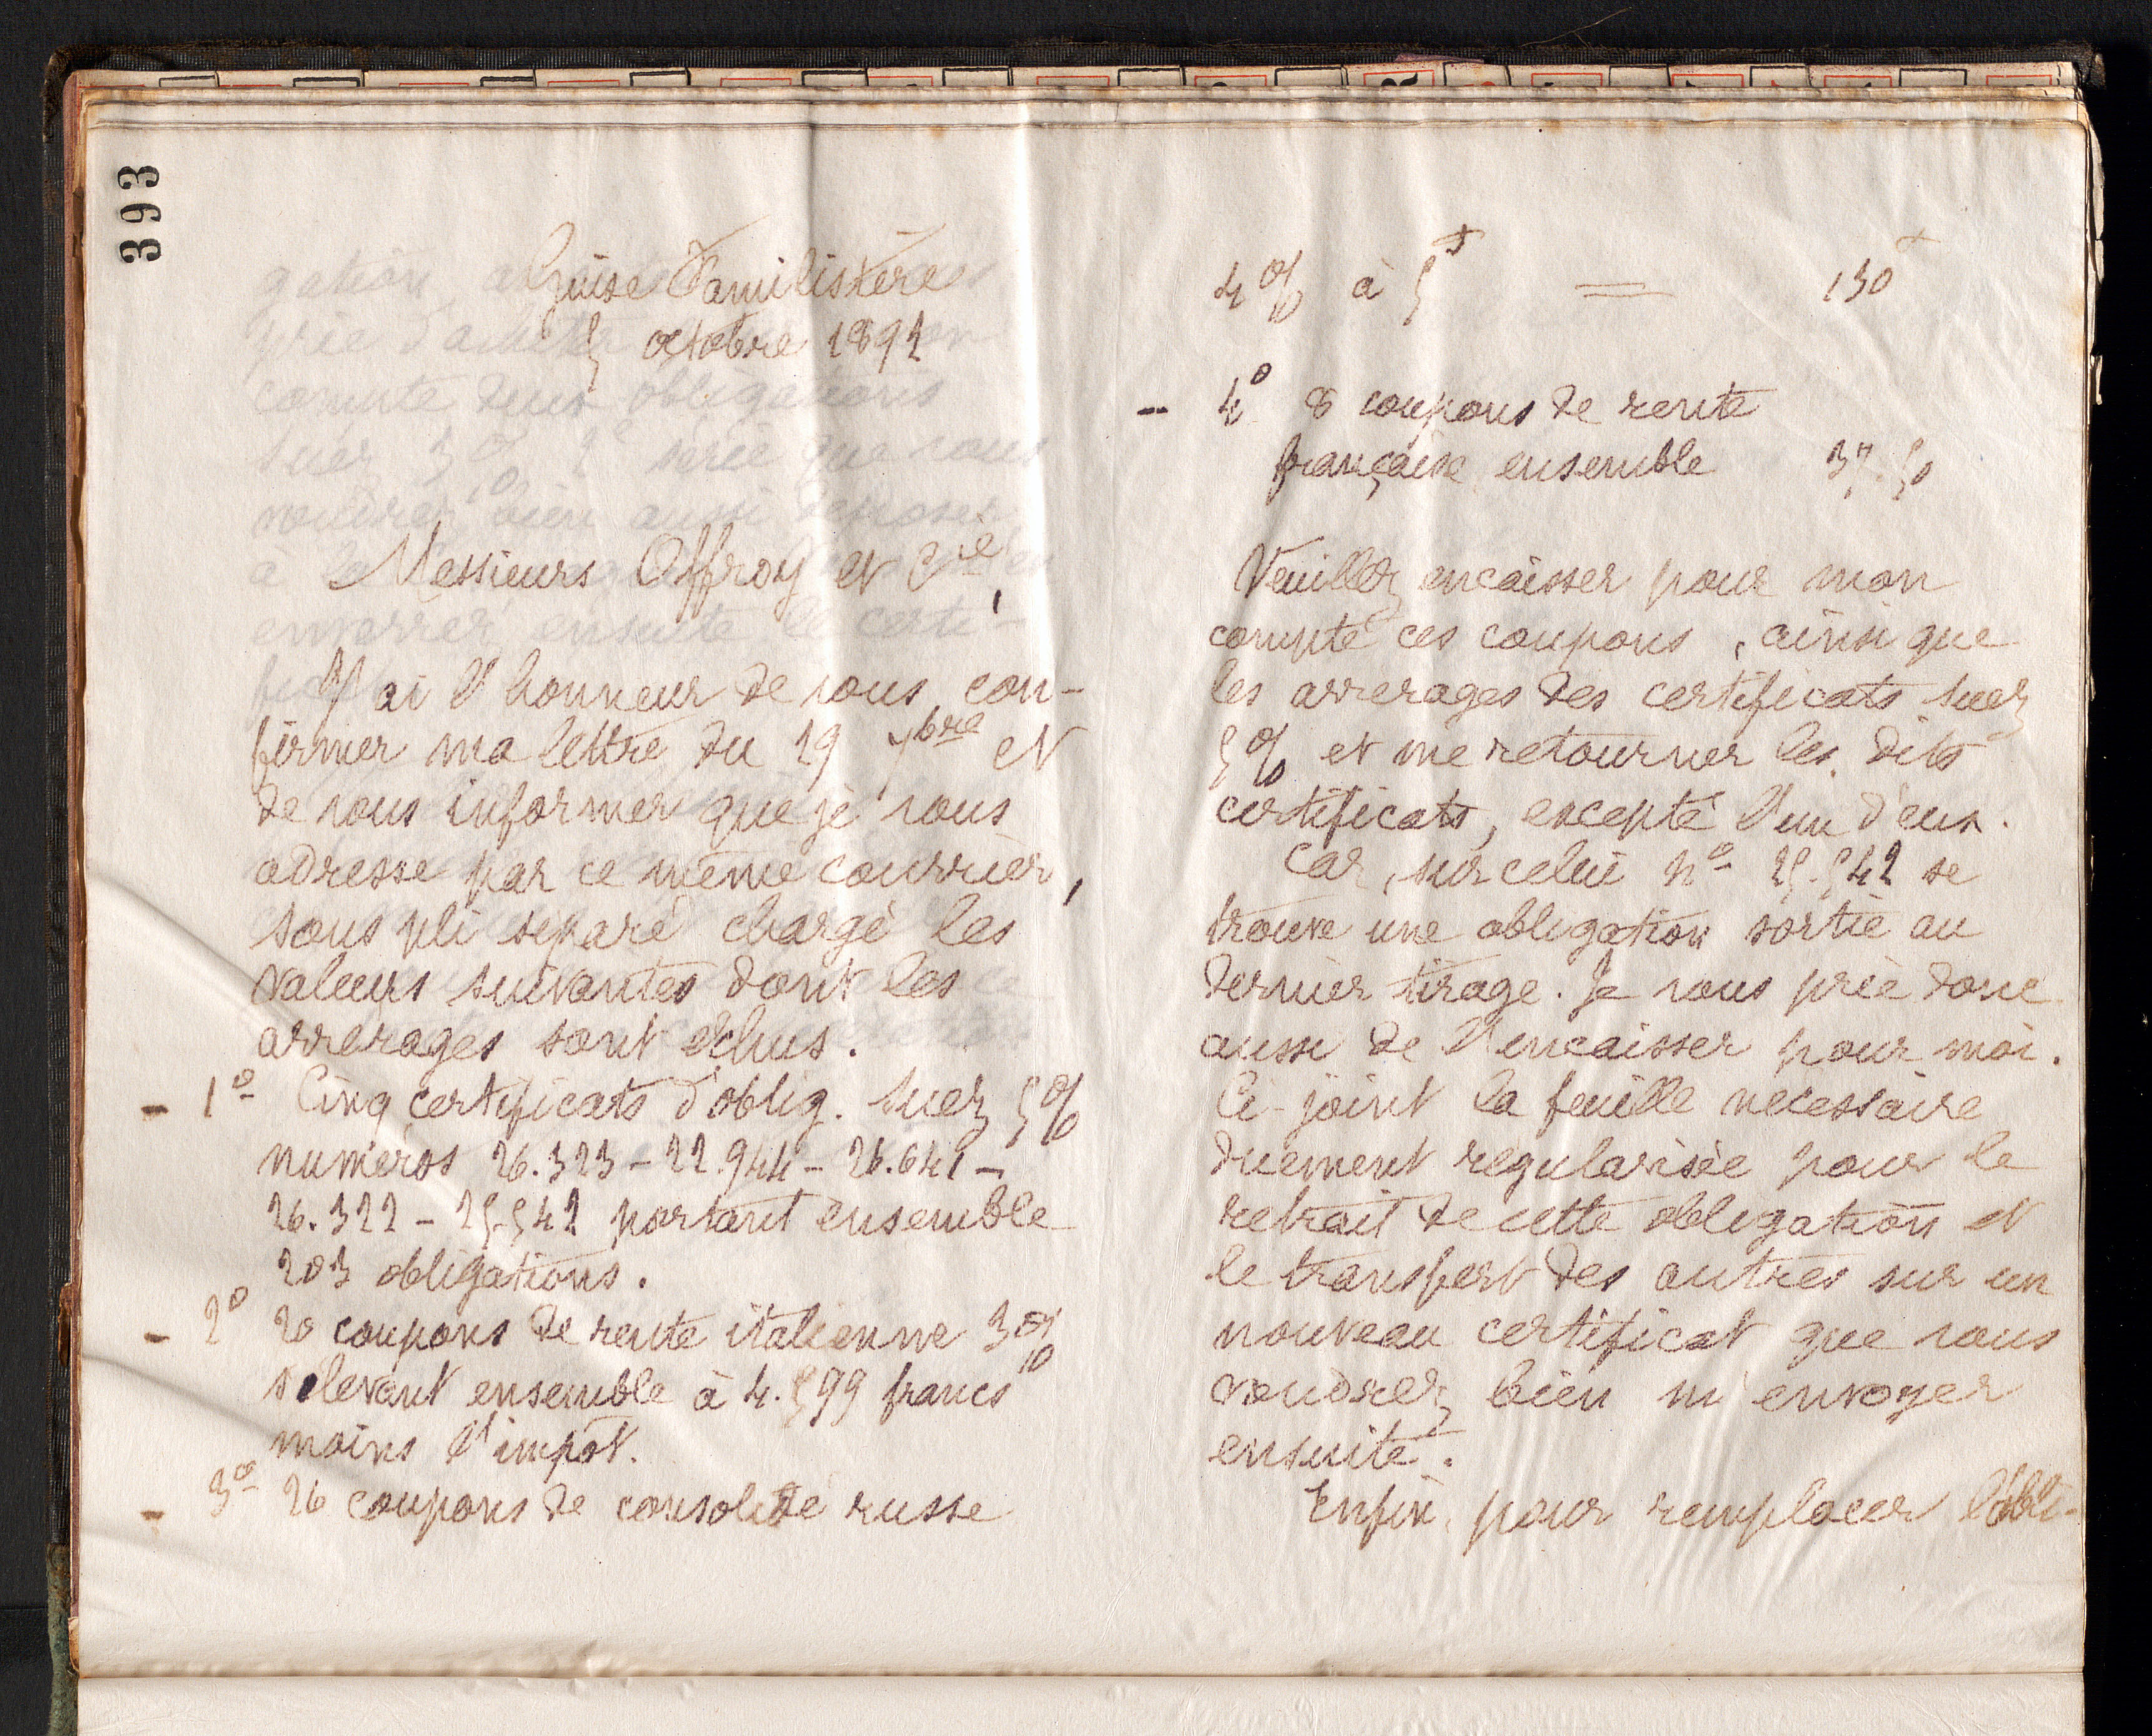 393
Guise Familistère
5 octobre 1892
Messieurs Offroy et Cie,
J'ai l'honneur de vous con-
firmer ma lettre du 19 7bre et
de vous informer que je vous
adresse par ce même courrier,
sous pli séparé chargé les
valeurs suivantes dont les
arrerages sont échus.
- 1o Cinq certificats d'oblig. Suez 5%
numéros 26.323 - 22.944 - 26.641 -
26.322 - 25.542 portant ensemble
203 obligations.
- 2o 20 coupons de rente italienne 3%
s'élevant ensemble à 4.599 francs
moins l'impôt.
- 3o 26 coupons de consolidé russe
4% à 5f = 130f
- 4o 8 coupons de rente
française ensemble 37.50
Veuillez encaisser pour mon
compte ces coupons, ainsi que
les arrerages des certificats Suez
5% et me retourner les dits
certificats, excepté l'un d'eux.
Car, sur celui no 25.542 se
trouve une obligation sortie au
dernier tirage. Je vous prie donc
aussi de l'encaisser pour moi.
Ci-joint la feuille necessaire
duement régularisée pour le
retrait de cette obligation et
le transfert des autres sur un
nouveau certificat que vous
voudrez bien m'envoyer
ensuite.
Enfin, pour remplacer l'obli-